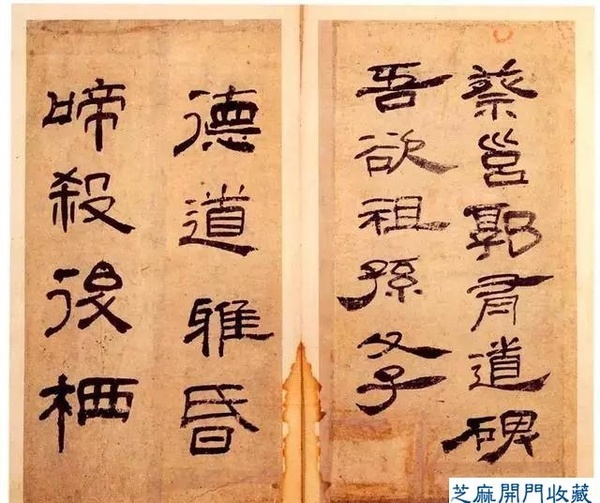 蔡邕郭有道碑
吾欲祖孫父子
德道雅昏
啼殺後栖
芝麻開門收藏